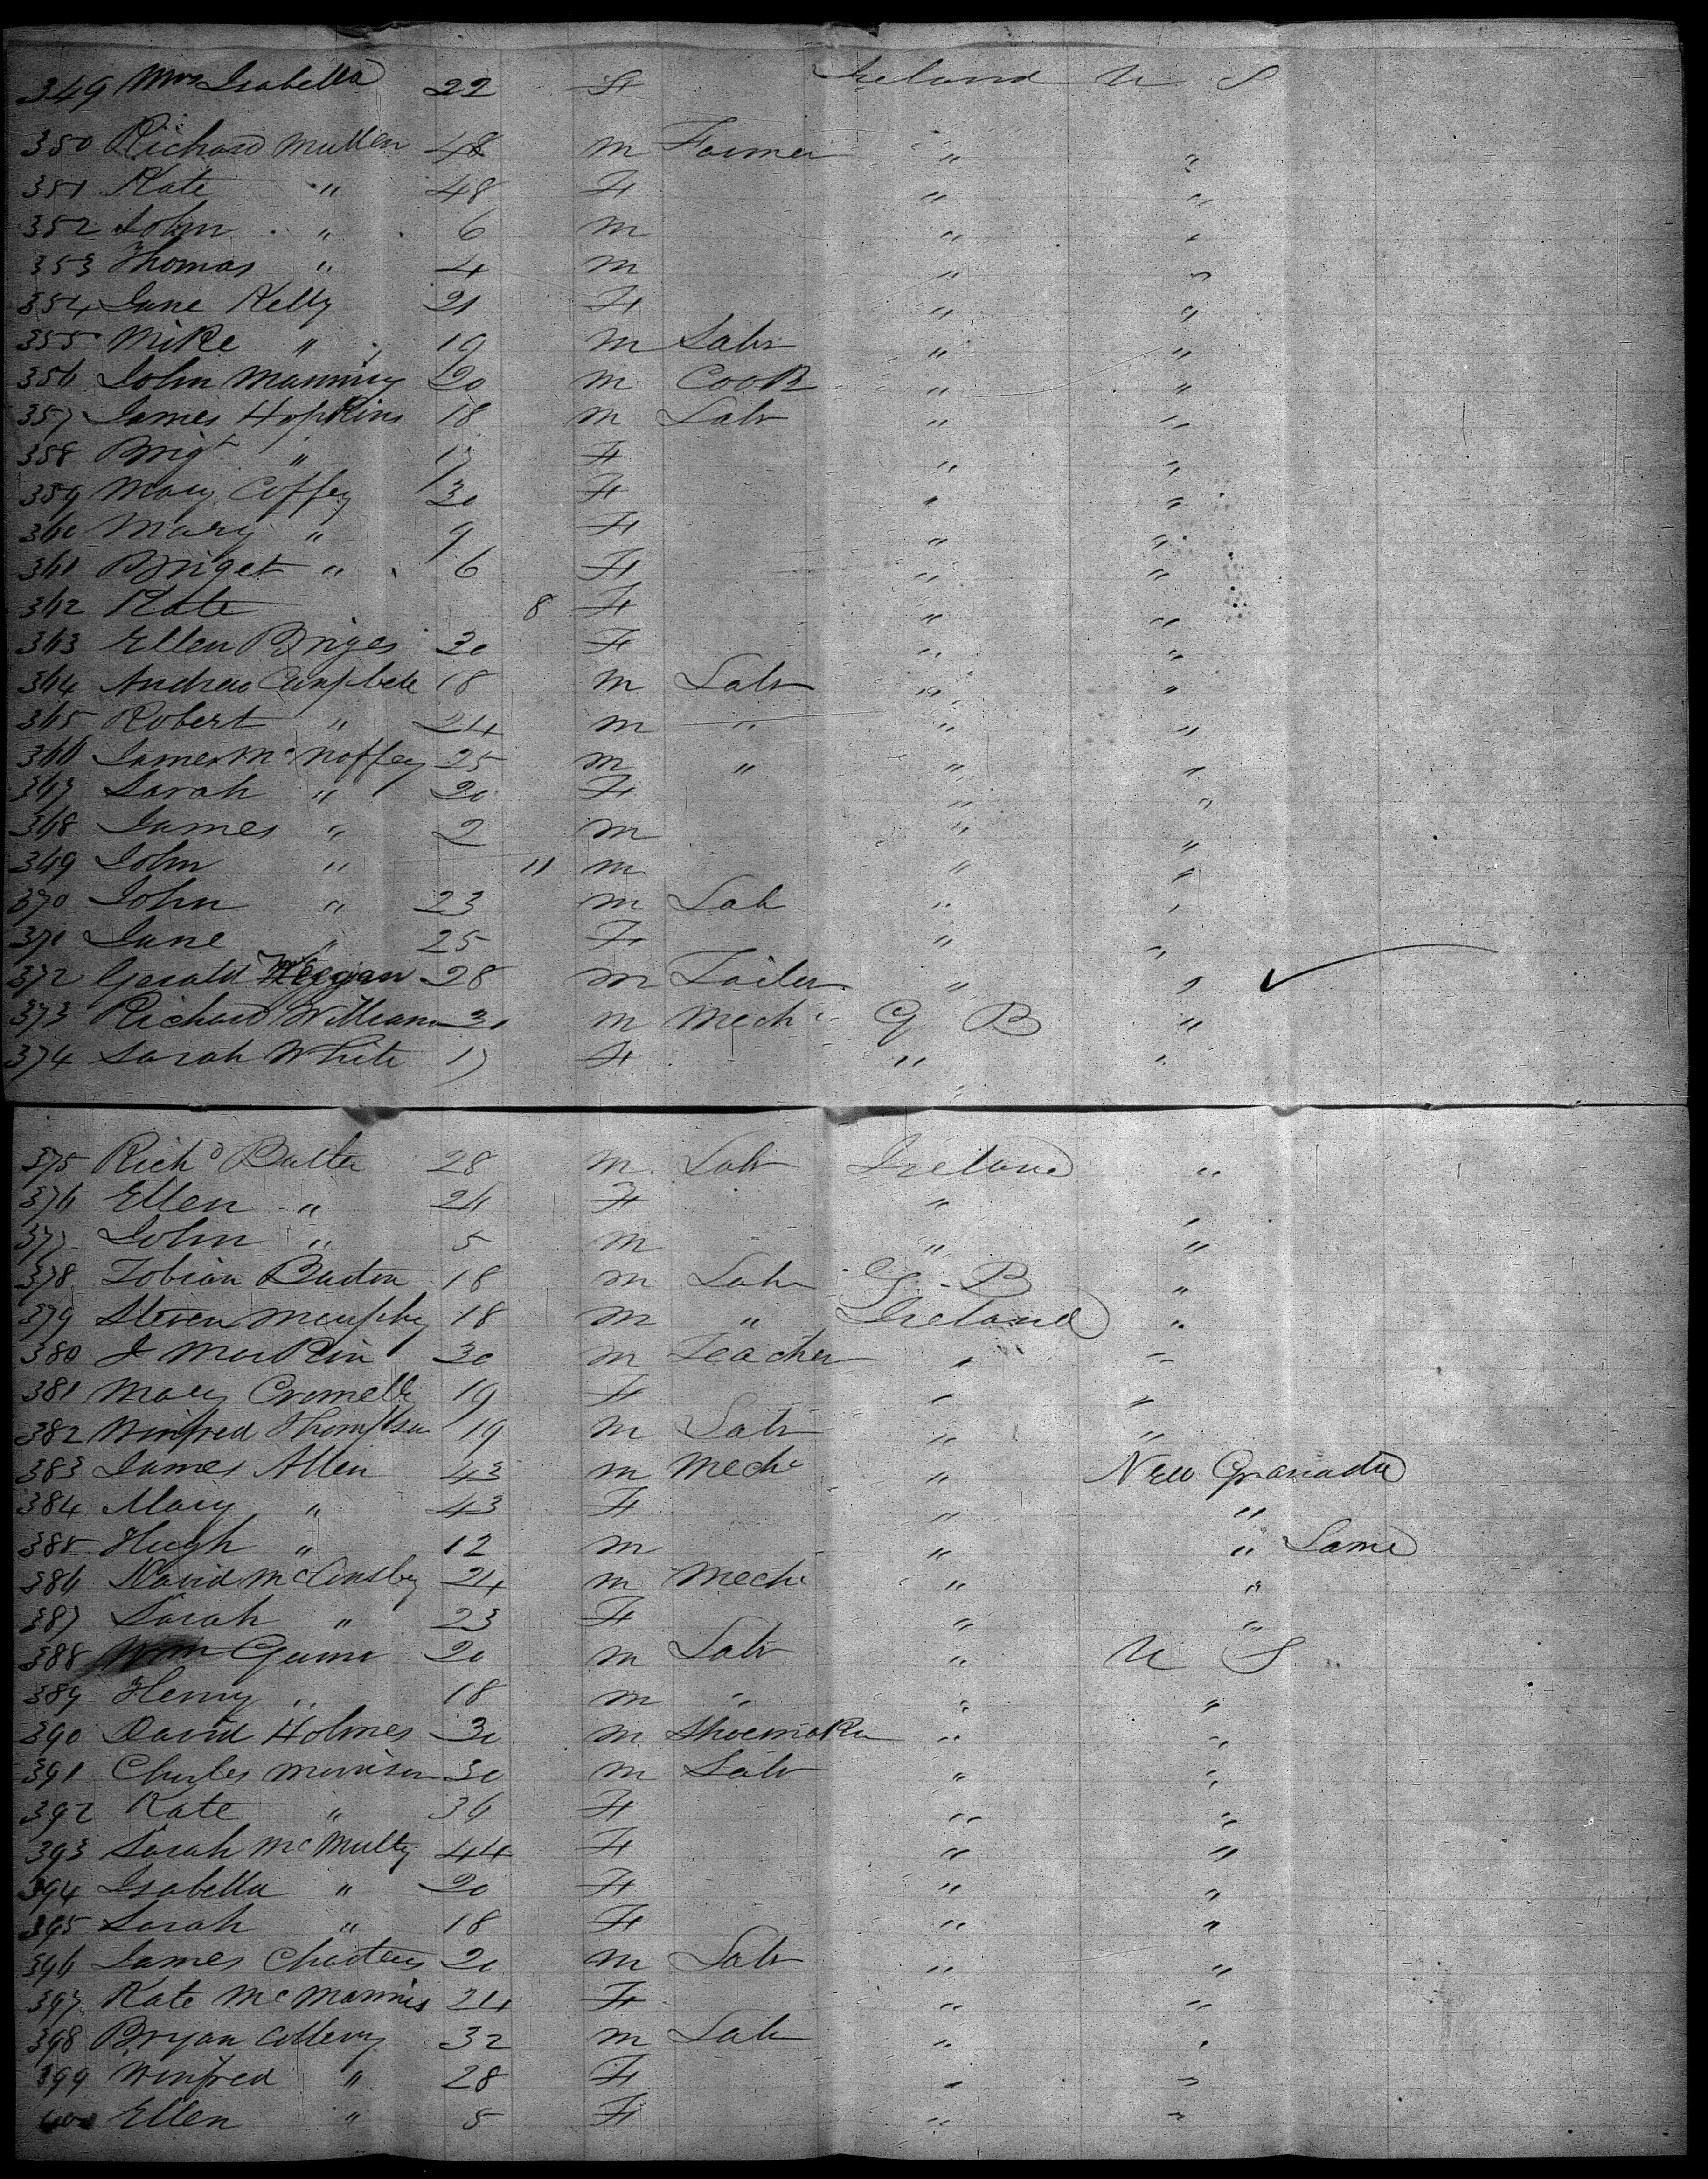 349 Mrs Isabella 22 F Ireland U S
350 Richard Mullen 48 m Farmer " "
351 Kate " 48 F " "
352 John " 6 m " "
353 Thomas " 4 m " "
354 Jane Kelly 21 F " "
355 Mike " 19 m Labr " "
356 John Manning 20 m Cook " "
357 James Hopkins 18 m Labr " "
358 Brigt " 17 F " "
359 Mary Coffey 30 F " "
360 Mary " 9 F " "
361 Briget " 6 F " "
362 Kate 8 F " "
363 Ellen Briges 30 F " "
364 Andrew Campbell 18 m Labr " "
365 Robert " 24 m " " "
366 James Mc Noffey 25 m " " "
367 Sarah " 20 F " "
368 James " 2 m " "
369 John " 11 m " "
370 John " 23 m Lab " "
371 Jane " 25 F " "
372 Gerald 28 m Tailor " "
373 Richard William 21 m Mech G B "
374 Sarah White 17 F " "
375 Richd Butler 28 m Labr Ireland "
376 Ellen " 26 F " "
377 John " 5 m " "
378 Tobian 18 m Labr G B "
379 Steven Murphy 18 m " Ireland "
380 J 30 m Teacher " "
381 Mary 19 F " "
382 Winfred Thompson 19 m Labr " "
383 James Allen 43 m Mech " New Granada
384 Mary " 43 F " "
385 Hugh " 12 m " " Same
386 David 24 m Mech " "
387 Sarah " 23 F " "
388 Wm 20 m Labr " U S
389 Henry " 18 m " " "
390 David Holmes 30 m Shoemaker " "
391 Charles Morrison 30 m Labr " "
392 Kate " 36 F " "
393 Sarah Mc Nulty 44 F " "
394 Isabella " 20 F " "
395 Sarah " 18 F " "
396 James 20 m Labr " "
397 Kate Mc Mannis 24 F " "
398 Bryan 32 m Lab " "
399 Winfred " 28 F " "
400 Ellen " 5 F " "